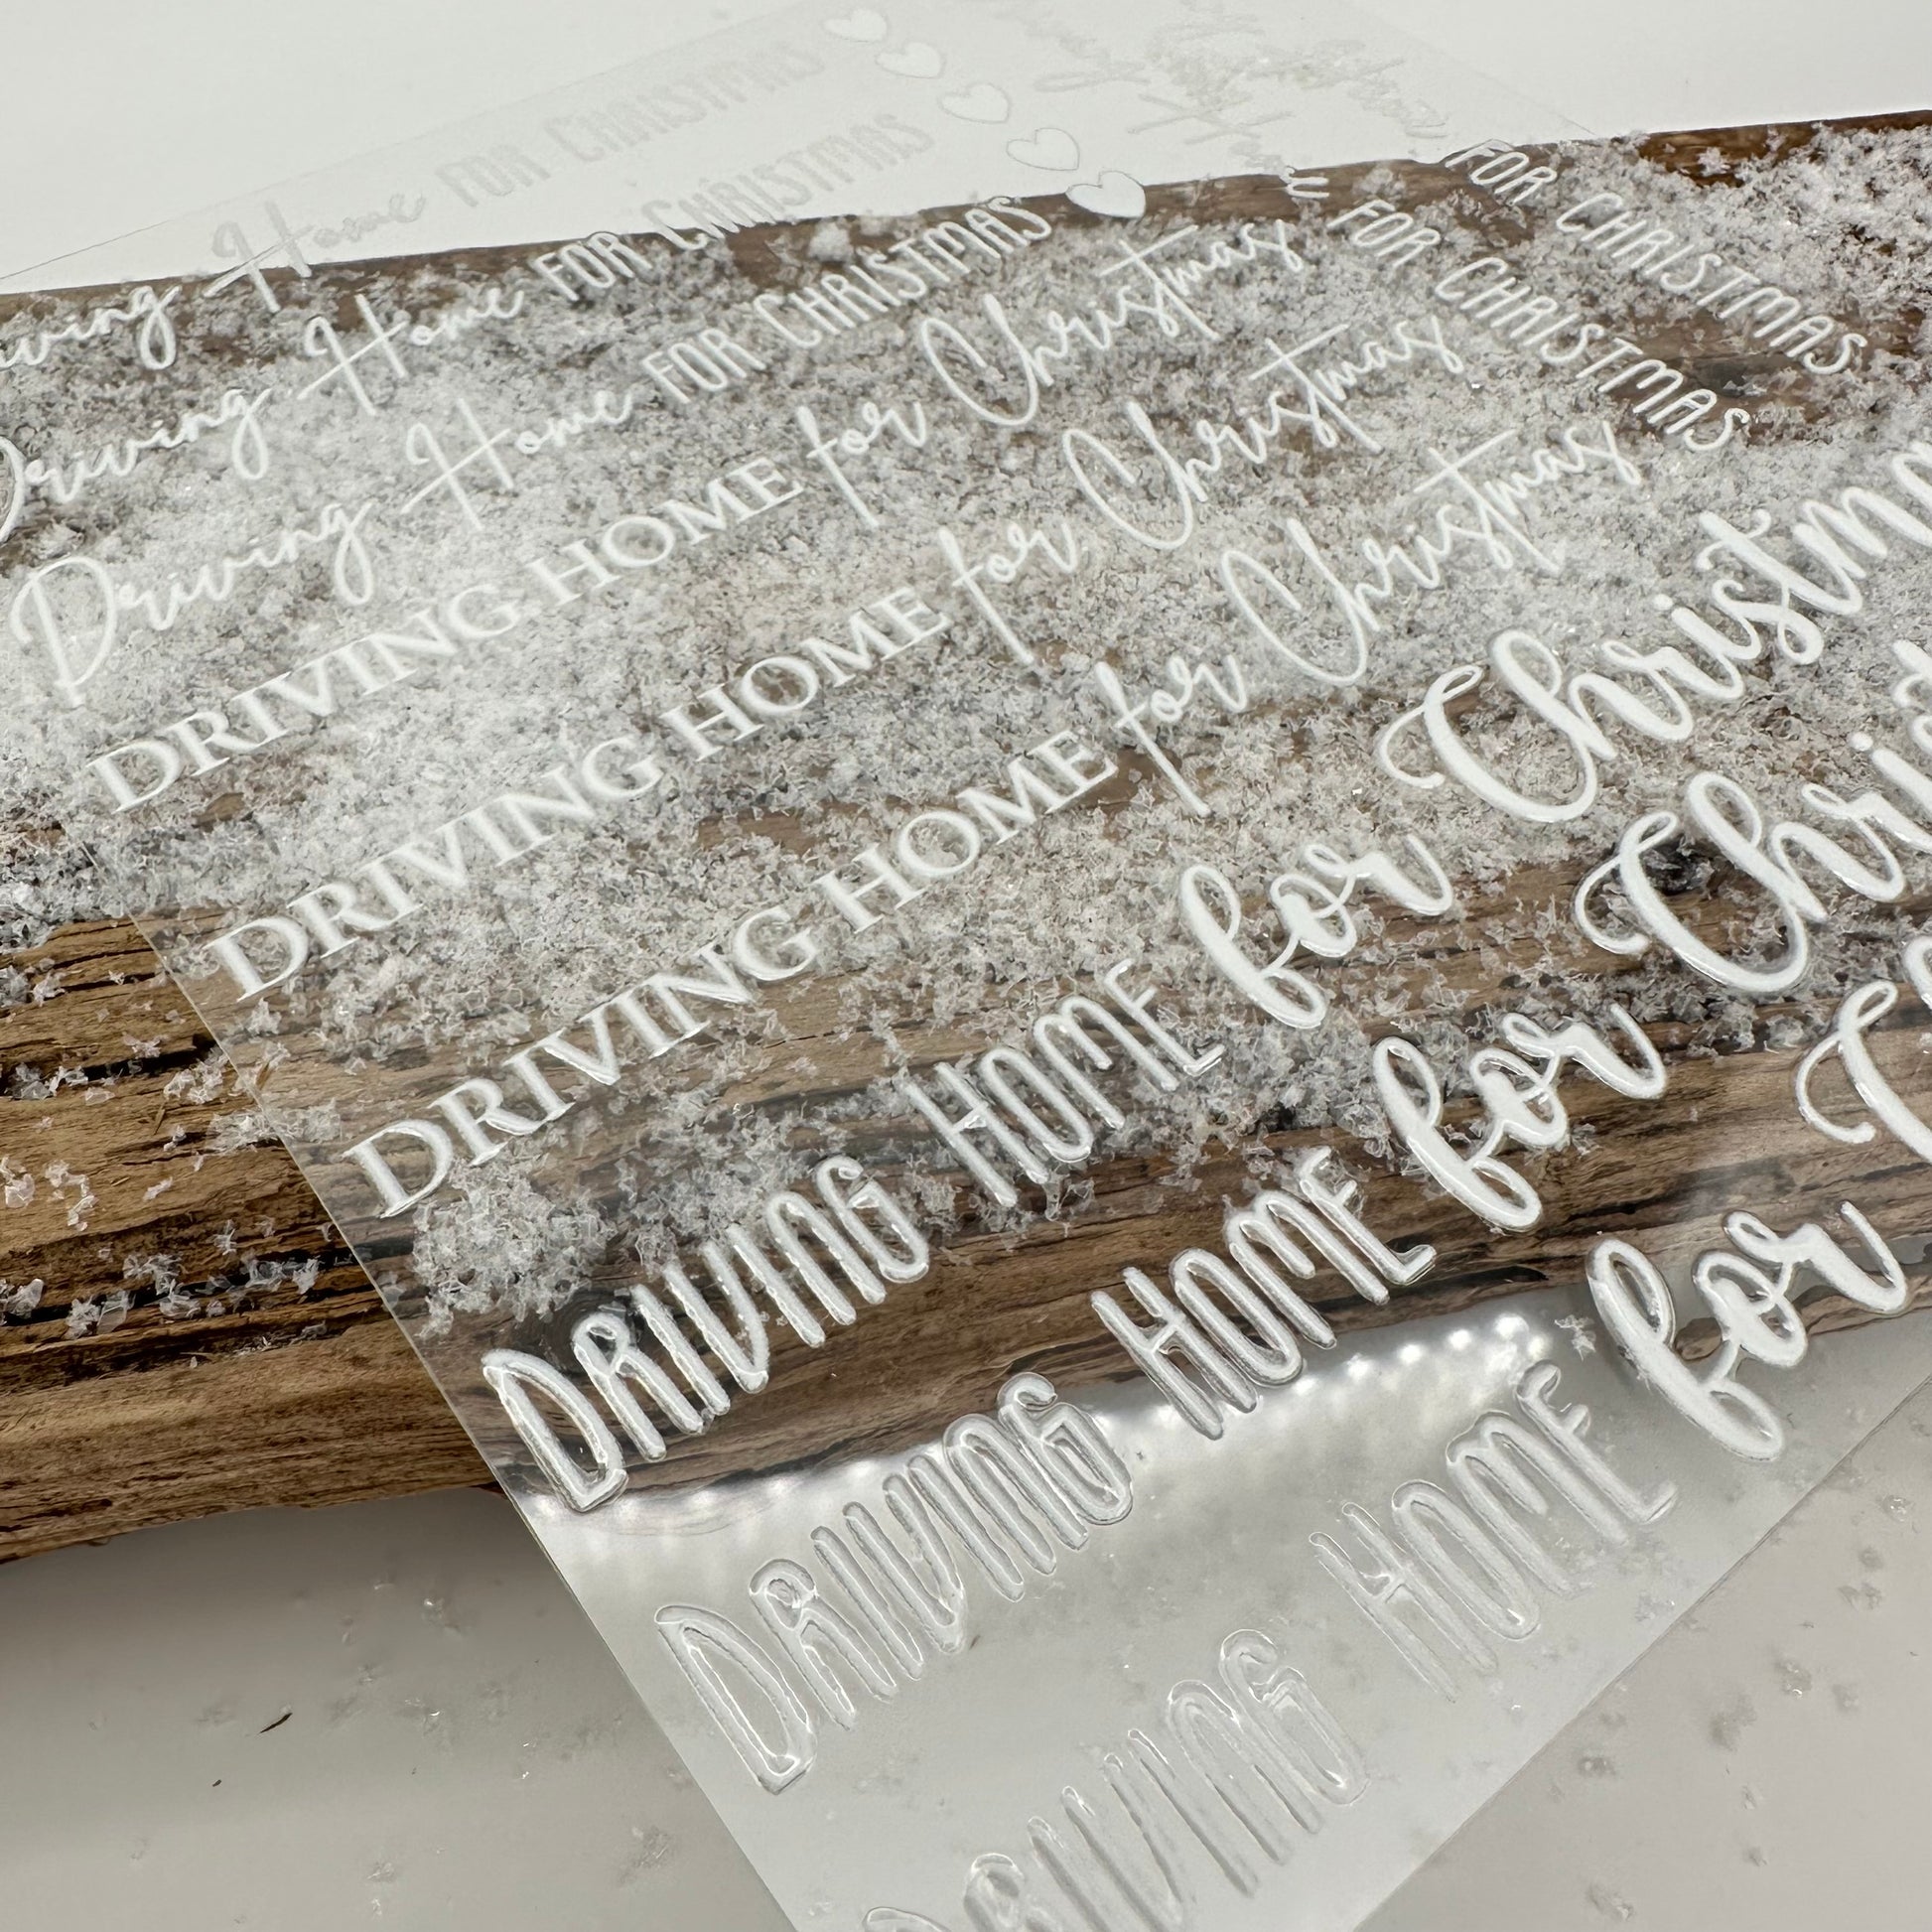 Home FOR CHRISTMAS
Driving Home FOR CHRISTMAS
Driving Home FOR CHRISTMAS
Home FOR CHRISTMAS
FOR CHRISTMAS
DRIVING HOME for Christmas
DRIVING HOME for Christmas
DRIVING HOME for Christmas
DRIVING HOME for Christm
DRIVING HOME for Chris
DRIVING HOME for